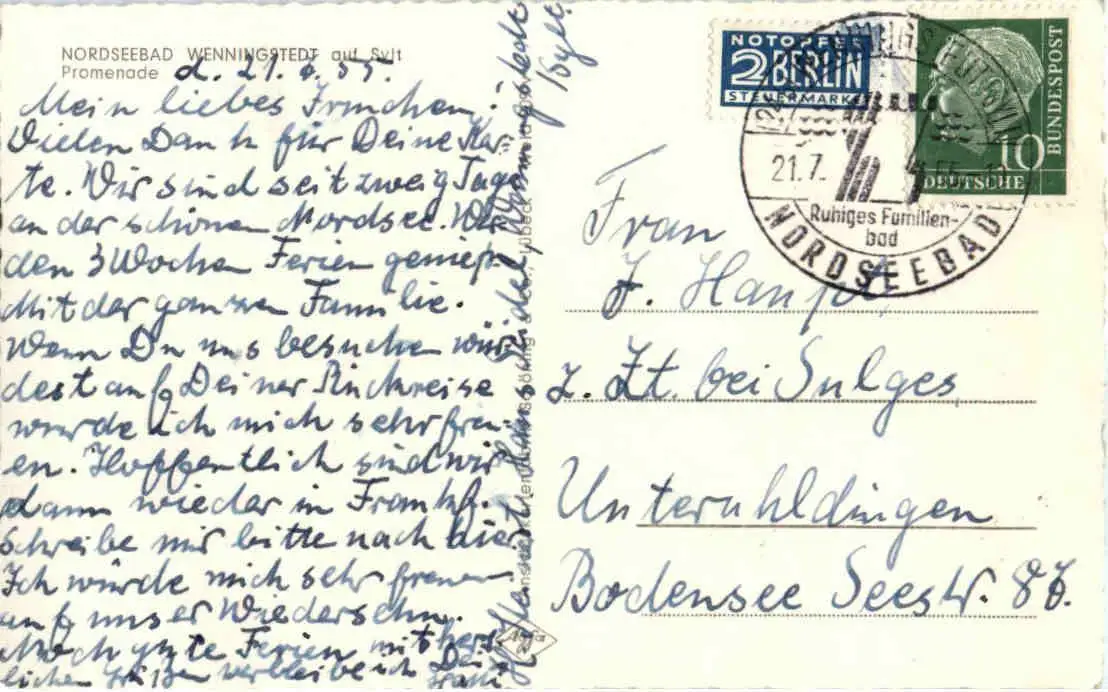 NORDSEEBAD WENNINGSTEDT auf Sylt
Promenade
d. 21. 55.
Mein liebes Irmchen!
Vielen Dank für Deine Kar-
te. Wir sind seit zweig Tage
an der schönen Nordsee. Wer
den 3 Wochen Ferien genieß.
Mit der ganzen Familie.
Wenn Du uns besuchen wür-
dest auf Deiner Rückreise
würde ich mich sehr freu-
en. Hoffentlich sind wir
dann wieder in Frankf.
Schreibe mir bitte nach hier.
Ich würde mich sehr freuen
auf unser Wiedersehn.
Noch gute Ferien mit herz-
lichen Grüßen verbleibe ich Deine
Haus
Sylt
NOTOPFER
2 BERLIN
STEUERMARKE
10
DEUTSCHE
BUNDESPOST
21.7.
Ruhiges Familien-
bad
NORDSEEBAD
Frau
J. Haupt
z. Zt. bei Sulges
Unteruhldingen
Bodensee Seestr. 87.